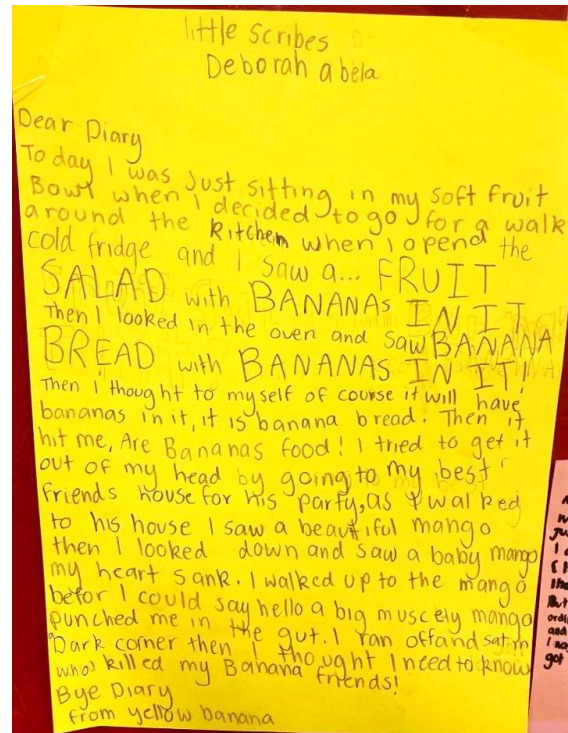 little scribes
Deborah abela
Dear Diary
Today I was Just sitting in my soft fruit
Bowl when I decided to go for a walk
around the kitchen when I opend the
cold fridge and I saw a... FRUIT
SALAD with BANANAS IN IT
Then I looked in the oven and saw BANANA
BREAD with BANANAS IN IT!
Then I thought to myself of course it will have
bananas in it, it is banana bread. Then it
hit me, Are Bananas food! I tried to get it
out of my head by going to my best
friends house for his party, as I walked
to his house I saw a beautiful mango
then I looked down and saw a baby mango
my heart sank. I walked up to the mango
befor I could say hello a big muscely mango
punched me in the gut. I ran off and sat in
Dark corner then I thought I need to know
who killed my Banana friends!
Bye Diary
from yellow banana
got